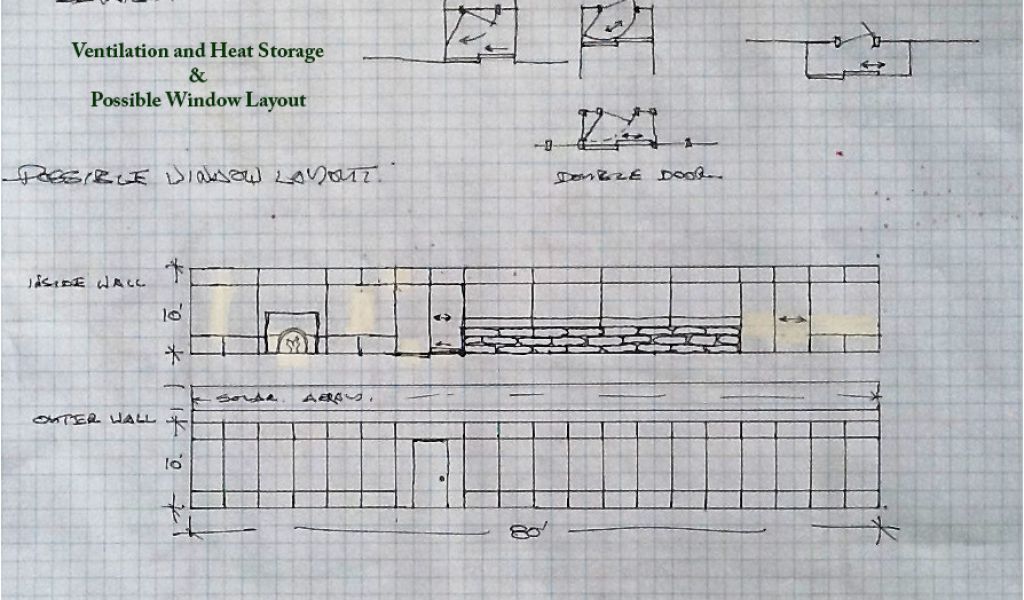 Ventilation and Heat Storage
&
Possible Window Layout
POSSIBLE WINDOW LAYOUT.
DOUBLE DOOR.
INSIDE WALL
10'
SOLAR ARRAY.
OUTER WALL
10'
80'